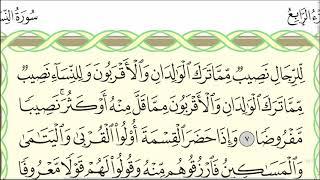 سُورَةُ النِّسَاءِ الجُزْءُ الرَّابِعُ
لِّلرِّجَالِ نَصِيبٌ مِّمَّا تَرَكَ الْوَالِدَانِ وَالْأَقْرَبُونَ وَلِلنِّسَاءِ نَصِيبٌ
مِّمَّا تَرَكَ الْوَالِدَانِ وَالْأَقْرَبُونَ مِمَّا قَلَّ مِنْهُ أَوْ كَثُرَ ۚ نَصِيبًا
مَّفْرُوضًا ٧ وَإِذَا حَضَرَ الْقِسْمَةَ أُوْلُوا الْقُرْبَىٰ وَالْيَتَامَىٰ
وَالْمَسَاكِينُ فَارْزُقُوهُم مِّنْهُ وَقُولُوا لَهُمْ قَوْلًا مَّعْرُوفًا